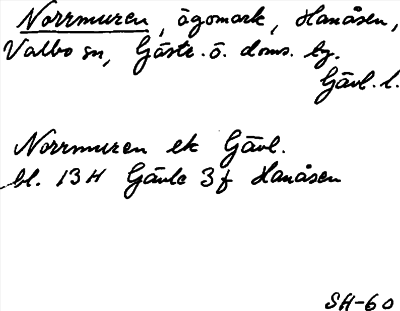 Norrmuren, ägomark, Hanåsen,
Valbo sn, Gästr. ö. doms. bg.
Gävl. l.
Norrmuren ek Gävl.
bl. 13H Gävle 3f Hanåsen
SH-60